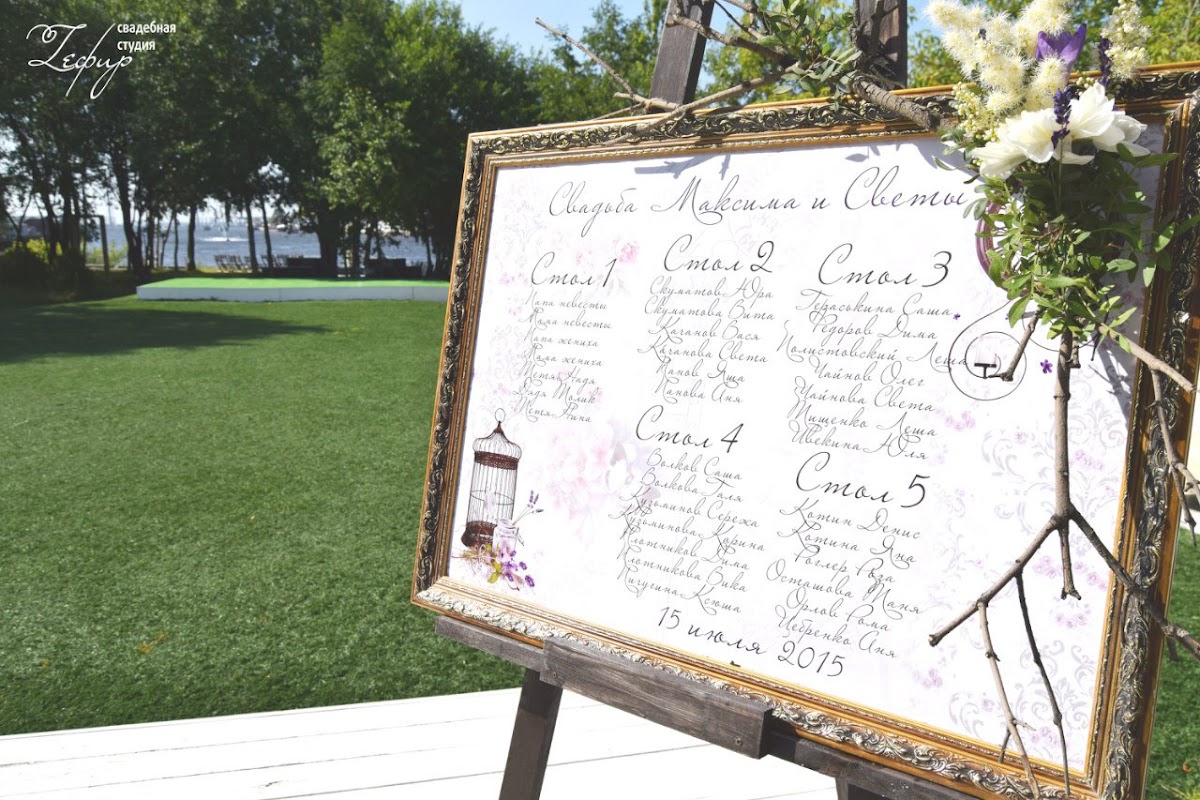 Зефир
свадебная
студия
Свадьба Максима и Светы
Стол 1
Папа невесты
Мама невесты
Папа жениха
Мама жениха
Тетя Надя
Дядя Толик
Тетя Нина
Стол 2
Скуматов Юра
Скуматова Вита
Качанов Вася
Качанова Света
Панов Яша
Панова Аня
Стол 3
Гераськина Саша
Федоров Дима
Полистовский Леша
Чайнов Олег
Чайнова Света
Тищенко Леша
Ивекина Юля
Стол 4
Волков Саша
Волкова Галя
Кузьминов Сережа
Кузьминова Карина
Плотников Дима
Плотникова Вика
Пигугина Ксюша
Стол 5
Котин Денис
Котина Яна
Роглер Роза
Осташова Таня
Орлов Рома
Цебренко Аня
15 июля 2015